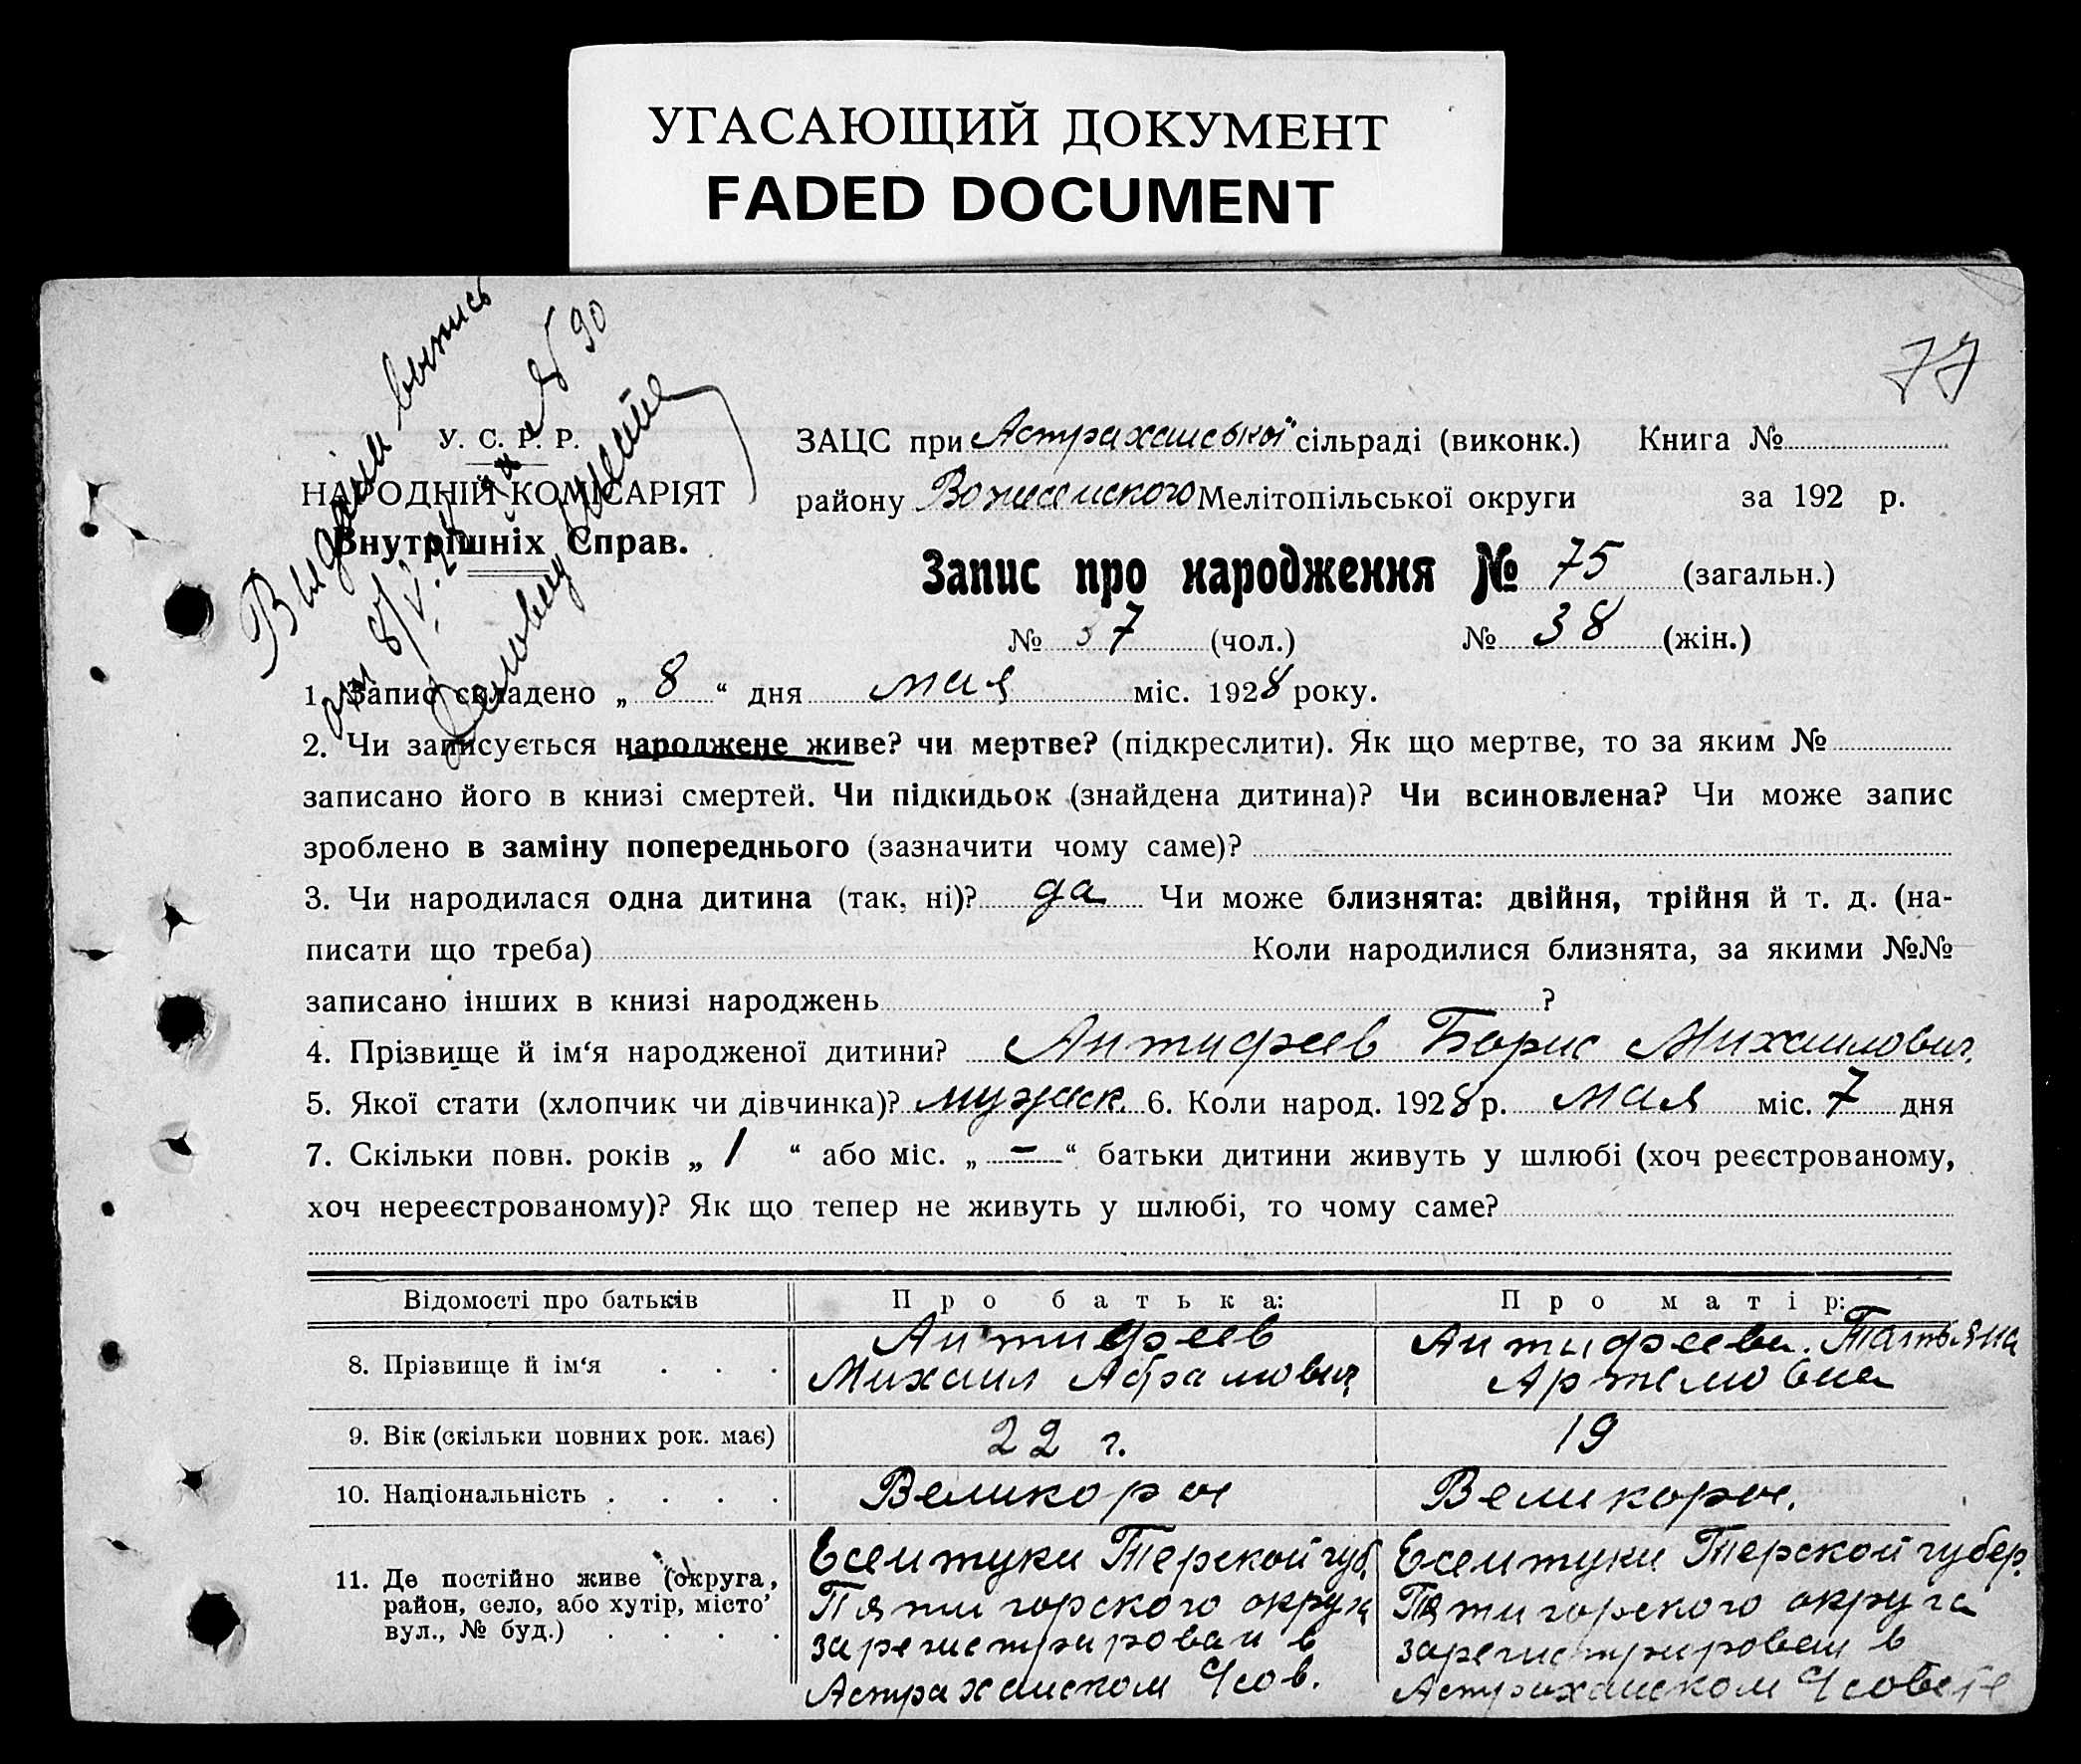 УГАСАЮЩИЙ ДОКУМЕНТ
FADED DOCUMENT
77
Выдана выпись
от 8/V-28 за № 90
У. С. Р. Р.
НАРОДНІЙ КОМІСАРІЯТ
Внутрішніх Справ.
ЗАЦС при Астраханської сільраді (виконк.) Книга №
району Вознесенского Мелітопільської округи за 192 р.
Запис про народження № 75 (загальн.)
№ 37 (чол.) № 38 (жін.)
1. Запис складено „ 8 “ дня мая міс. 1928 року.
2. Чи записується народжене живе? чи мертве? (підкреслити). Як що мертве, то за яким №
записано його в книзі смертей. Чи підкидьок (знайдена дитина)? Чи всиновлена? Чи може запис
зроблено в заміну попереднього (зазначити чому саме)?
3. Чи народилася одна дитина (так, ні)? да Чи може близнята: двійня, трійня й т. д. (на-
писати що треба) Коли народилися близнята, за якими №№
записано інших в книзі народжень ?
4. Прізвище й ім‘я народженої дитини? Антифеев Борис Михаилович.
5. Якої стати (хлопчик чи дівчинка)? мужск. 6. Коли народ. 1928 р. мая міс. 7 дня
7. Скільки повн. років „ 1 “ або міс. „ – “ батьки дитини живуть у шлюбі (хоч реєстрованому,
хоч нереєстрованому)? Як що тепер не живуть у шлюбі, то чому саме?
Відомості про батьків Про батька: Про матір:
8. Прізвище й ім‘я . . . Антифеев Михаил Абрамович Антифеева Татьяна Артемовна
9. Вік (скільки повних рок. має) 22 г. 19
10. Національність . . . . Великорос Великорос.
11. Де постійно живе (округа, район, село, або хутір, місто вул., № буд.) . . . .
Есентуки Терской губ.
Пятигорского округа
зарегистрирован в
Астраханском Ч/сов.
Есентуки Терской губер.
Пятигорского округа
зарегистрирован в
Астраханском Ч/совете